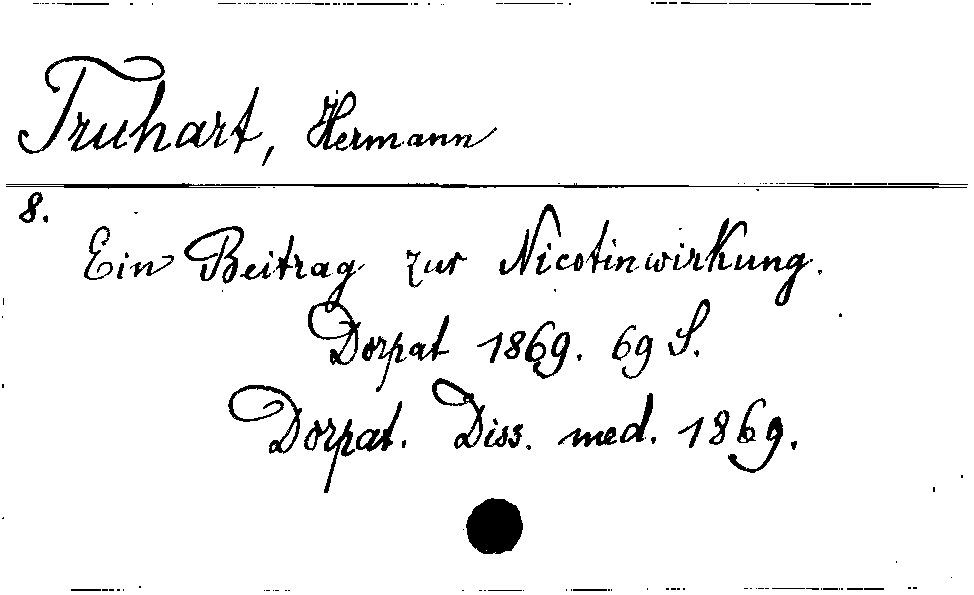 Truhart, Hermann
8.
Ein Beitrag zur Nicotinwirkung.
Dorpat 1869. 69 S.
Dorpat. Diss. med. 1869.